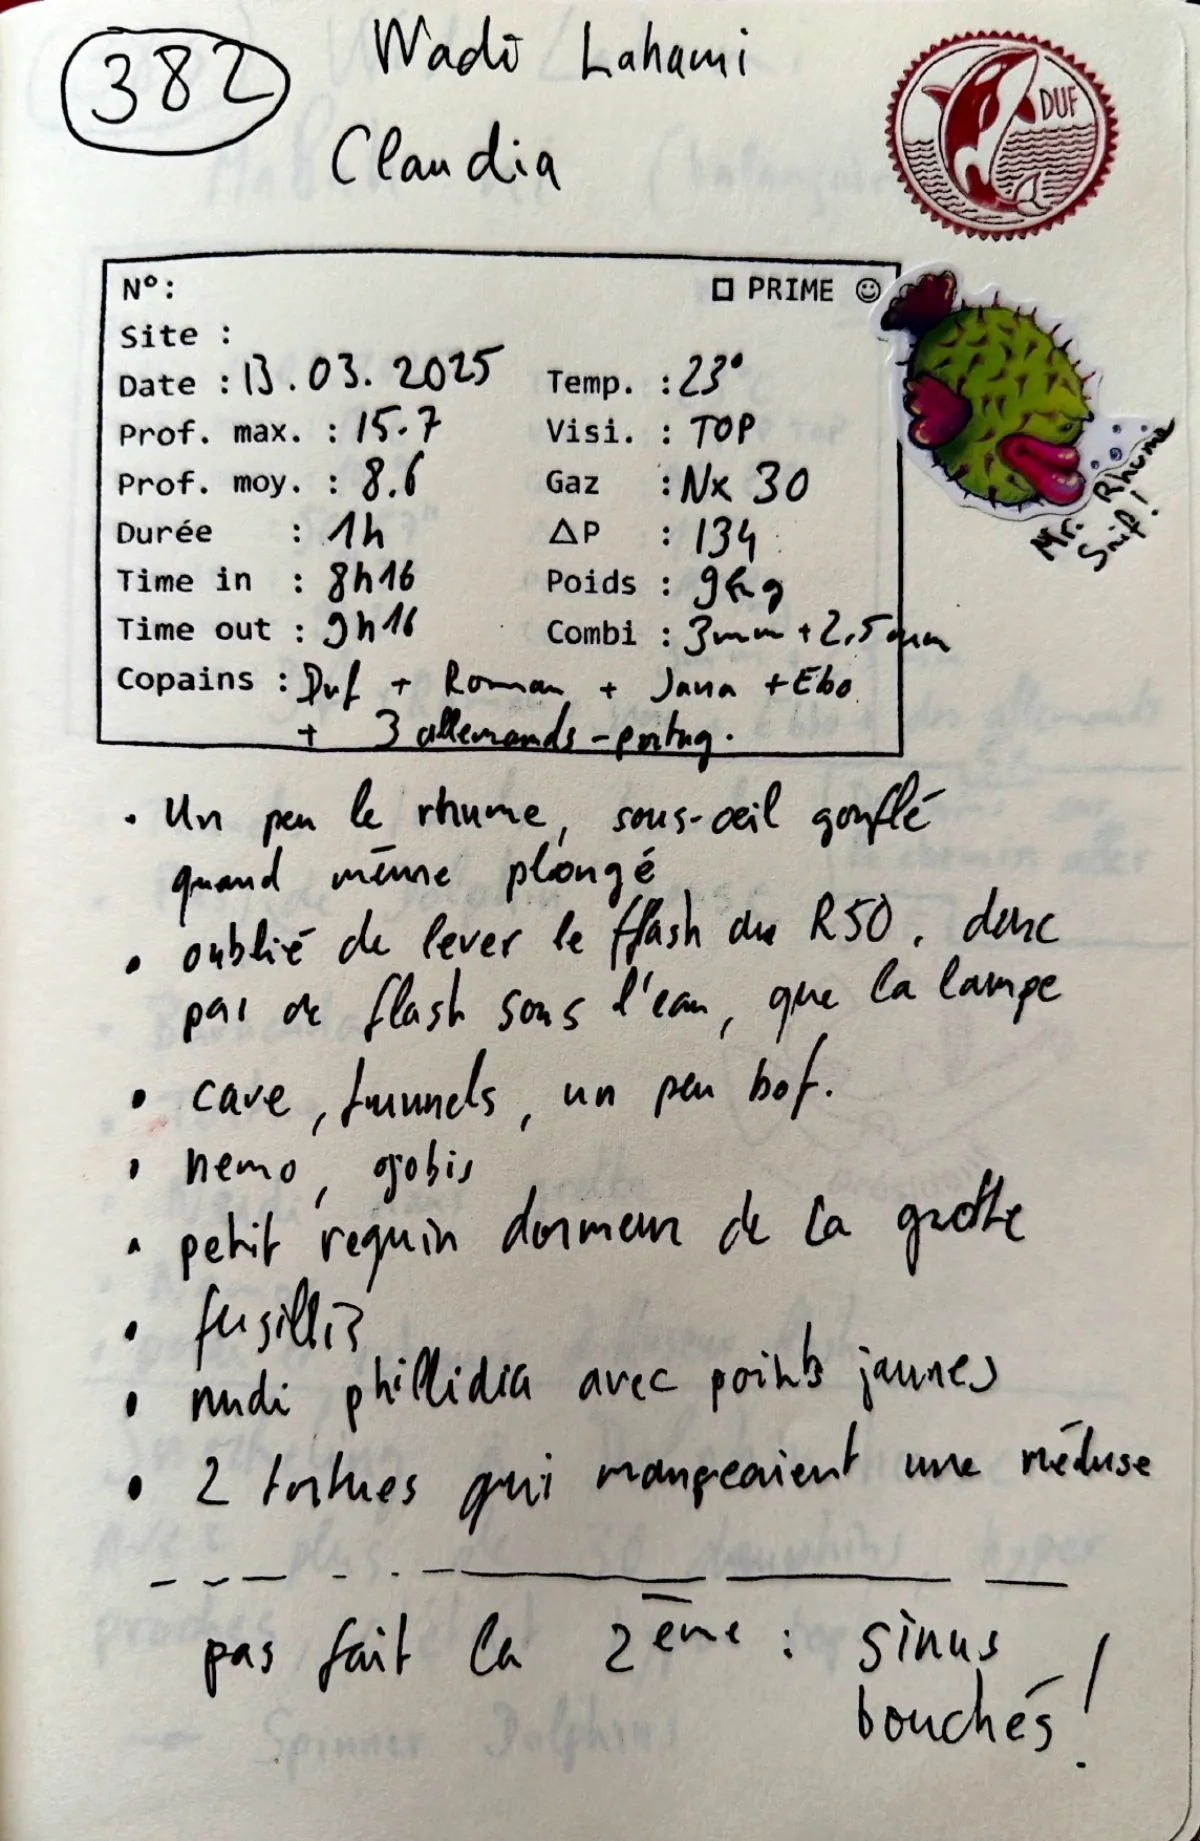 382
Wadi Lahami
Claudia
DUF
N°:
□ PRIME ☺
Site :
Date : 13.03.2025
Temp. : 23°
Prof. max. : 15.7
Visi. : TOP
Prof. moy. : 8.6
Gaz : Nx 30
Durée : 1h
ΔP : 134
Time in : 8h16
Poids : 9kg
Time out : 9h16
Combi : 3mm + 2,5mm
Copains : Duf + Roman + Jana + Ebo
+ 3 allemands-portug.
Mr. Rhume
Snif!
• Un peu le rhume, sous-œil gonflé
quand même plongé
• oublié de lever le flash du R50, donc
pas de flash sous l'eau, que la lampe
• cave, tunnels, un peu bof.
• nemo, gobis
• petit requin dormeur de la grotte
• fusillis
• nudi phillidia avec points jaunes
• 2 tortues qui mangeaient une méduse
pas fait la 2ème : sinus
bouchés!